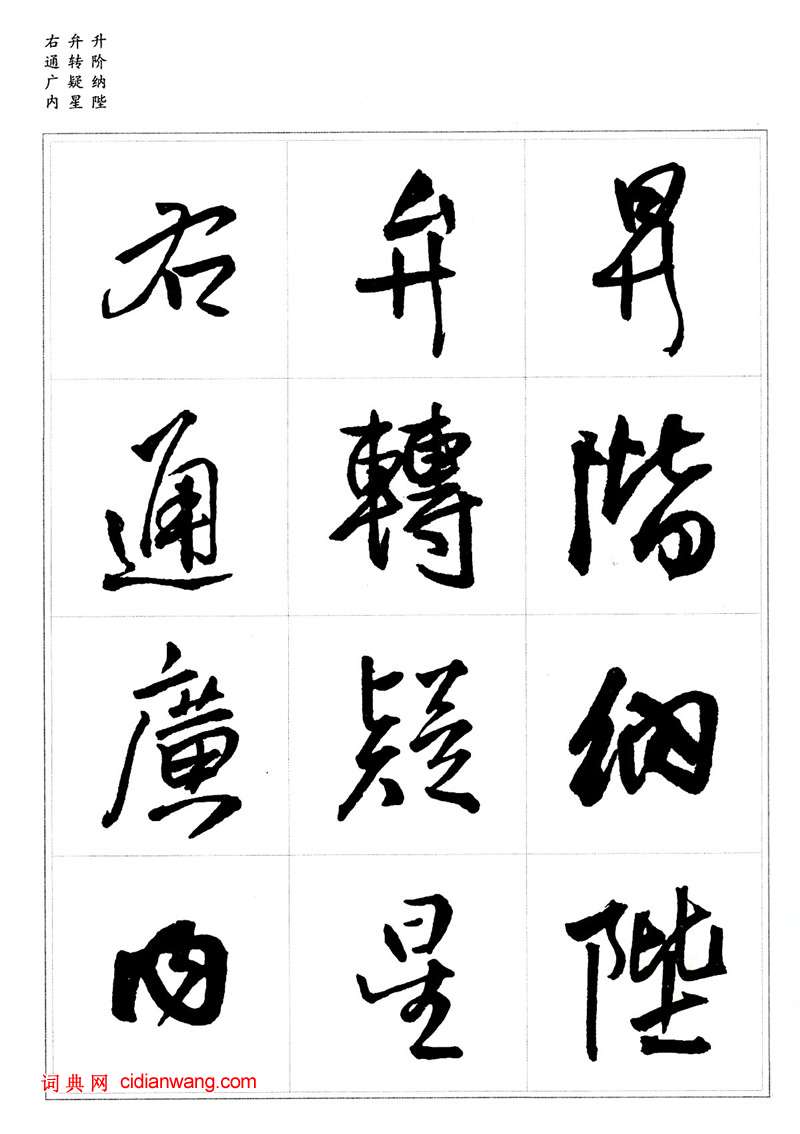 升阶纳陛
弁转疑星
右通广内
昇階納陛
弁轉疑星
右通廣内
词典网 cidianwang.com